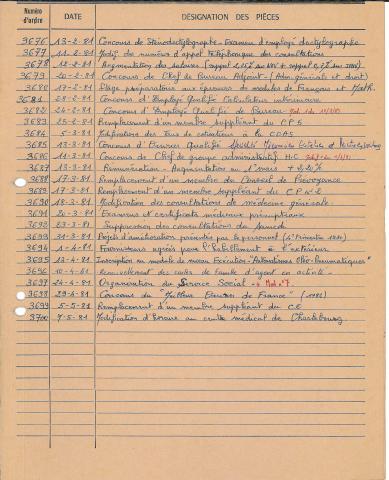 Numéro d'ordre DATE DÉSIGNATION DES PIÈCES
3676 13-2-81 Concours de Sténodactylographe - Examen d'Employé dactylographe
3677 11-2-81 Modif des numéros d'appel téléphonique des consultations
3678 12-2-81 Augmentation des salaires
3679 20-2-81 Concours de Chef de Bureau Adjoint (Adm. générale et droit)
3680 17-2-81 Stage préparatoire aux épreuves de modules de Français et Math
3681 28-2-81 Concours d'Employé Qualifié Calculateur
3682 24-2-81 Concours d'Employé Qualifié de Bureau
3683 25-2-81 Remplacement d'un membre suppléant du CPS
3684 5-3-81 Modification des Taux de cotisations à la CCAS
3685 13-3-81 Concours d'Ouvrier Qualifié
3686 11-3-81 Concours de Chef de groupe administratif H.C
3687 13-3-81 Rémunération - Augmentation au 1° mars + 2,20%
3688 17-3-81 Remplacement d'un membre du Conseil de Prévoyance
3689 17-3-81 Remplacement d'un membre suppléant du CP n°2
3690 18-3-81 Modification des consultations de médecine générale
3691 20-3-81 Examens et certificats médicaux prénuptiaux
3692 23-3-81 Suppression des consultations du Samedi
3693 31-3-81 Projets d'amélioration présentés par le personnel (4° trimestre 1980)
3694 1-4-81 Fournisseurs agréés pour l'habillement à l'extérieur
3695 13-4-81 Inscription au module de niveau Exécution "Automatismes Oléo-Pneumatiques"
3696 10-4-81 Renouvellement des cartes de famille d'agent en activité
3697 24-4-81 Organisation du Service Social - Mod n°7
3698 29-4-81 Concours du "Meilleur Ouvrier de France" (1982)
3699 5-5-81 Remplacement d'un membre suppléant du CE
3700 7-5-81 Modification d'horaire au centre médical de Championnet